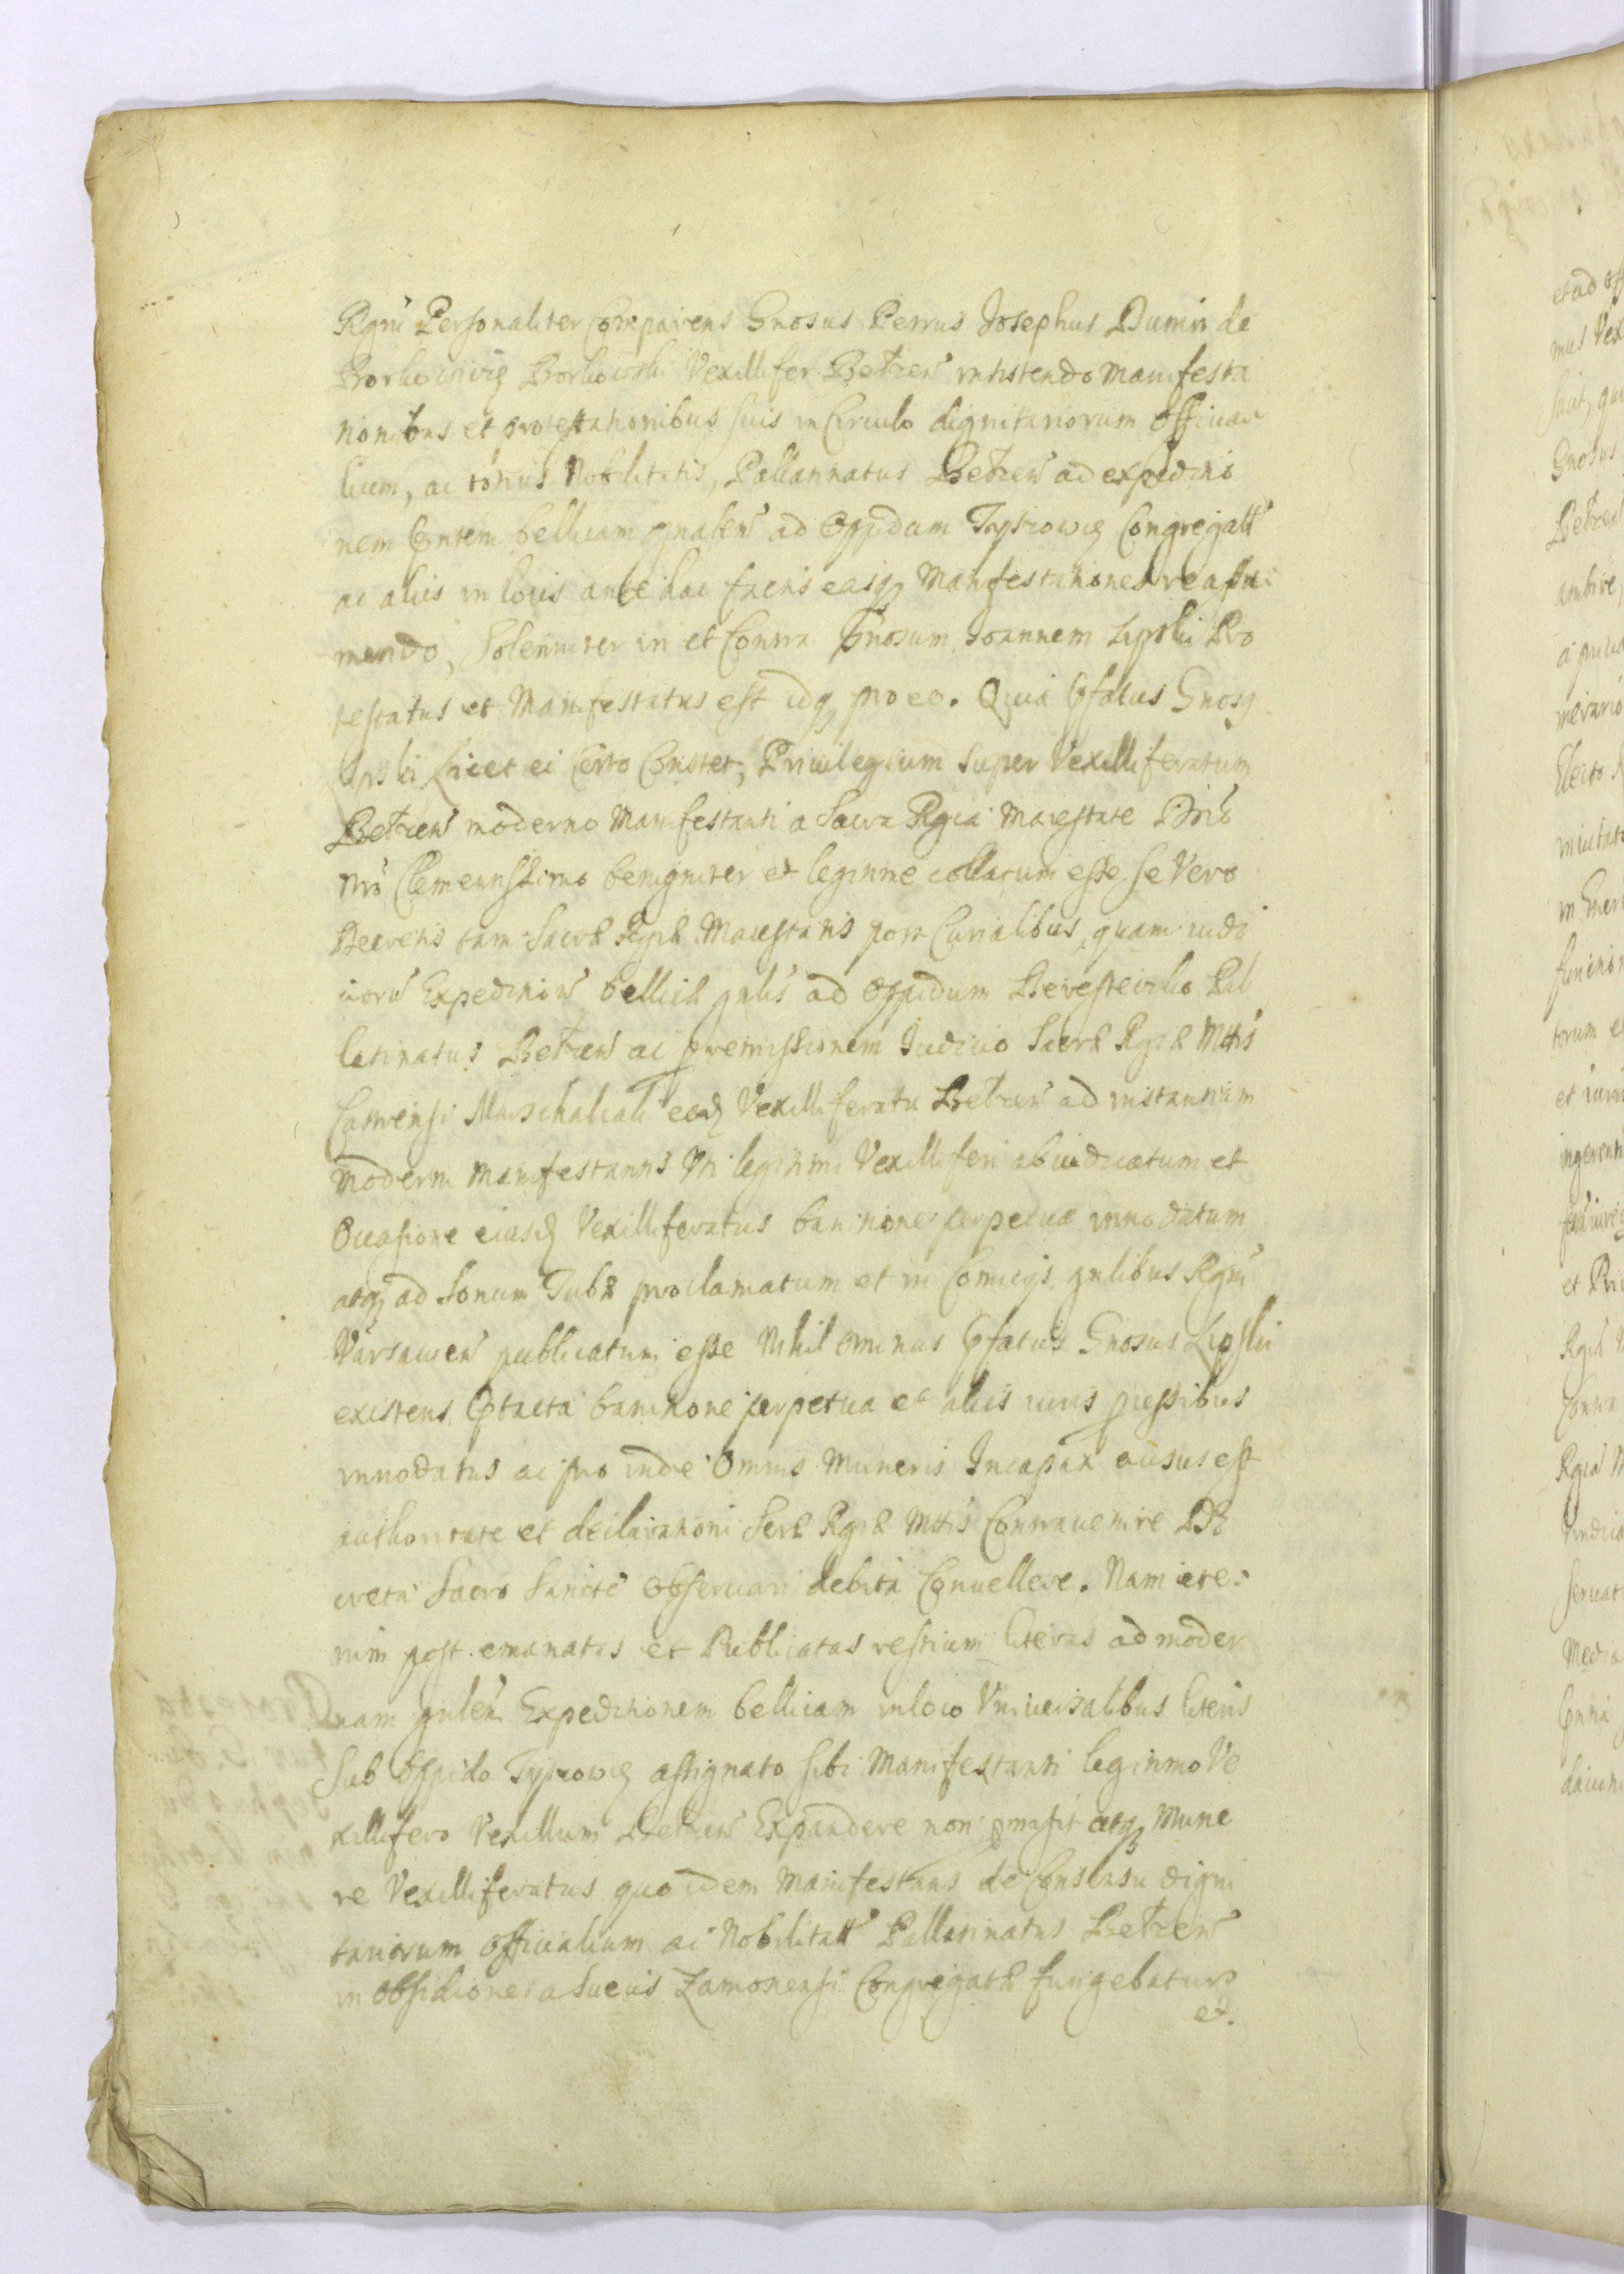 Rgni Personaliter Comparens Gnosus Petrus Josephus Dunin de
Borkowicze Borkowski Vexillifer Betzen insistendo Manifesta
tionibus et protestationibus suis in Circulo dignitariorum Officia
lium, ac totius Nobilitatis, Pallatinatus Betzen ad expeditio
nem Gentem bellicam gnalem ad Oppidum Tyszowce Congregatt
ac aliis in locis ante hac factis easq Manifestationes reassu
mendo, Solenniter in et Contra Gnosum Joannem Lipski Pro
testatus et Manifestatus est idq pro eo. Quia Pfatus Gnosq
Lipski Licet ei Certo Constet, Privilegium super Vexilliferatum
Betzen moderno Manifestanti a Sacra Rgia Maiestate Dno
Nro Clementissimo benigniter et legitime collatum esse se Vero
Decretis tam Sacræ Rgiæ Maiestatis post Curialibus, quam iudi
ciorũ Expeditionis bellicæ gnlis ad Oppidum Beresteczko Pal
latinatus Betzen ac premissionem Iudicio Sacræ Rgiæ Mttis
Castrensi Marschalcali eodẽ Vexilliferatu Betzen ad instantiam
Moderni Manifestantis Uti legitimi Vexilliferi abiudicatum et
Occasione eiusdẽ Vexilliferatus bannitione perpetua innodatum
atq ad sonum Tubæ proclamatum et in Comitijs gnlibus Rgni
Varsavien publicatum esse Nihilominus Pfatus Gnosus Lipski
existens Ptacta bannitione perpetua et aliis iuris pressibus
innodatus ac pro inde Omnis Muneris Incapax ausus est
authoritate et declarationi Seræ Rgiæ Mttis Contravenire De
creta Sacro Sancte Observari debita Convellere. Nam ete-
nim post emanatas et Publicatas restium literas ad moder
nam gnlem Expeditionem bellicam in loco Universalibus literis
Sub Oppido Tyszowce assignato sibi Manifestanti legitimo Ve
xillifero Vexillum Betzen Expandere non pmisit atq Mune
re Vexilliferatus quo idem Manifestans de Consensu digni
tariorum officialium ac Nobilitatt Pallatinatus Betzen
in obsidione a Suecis Zamoscensi Congregatæ fungebatur
et.